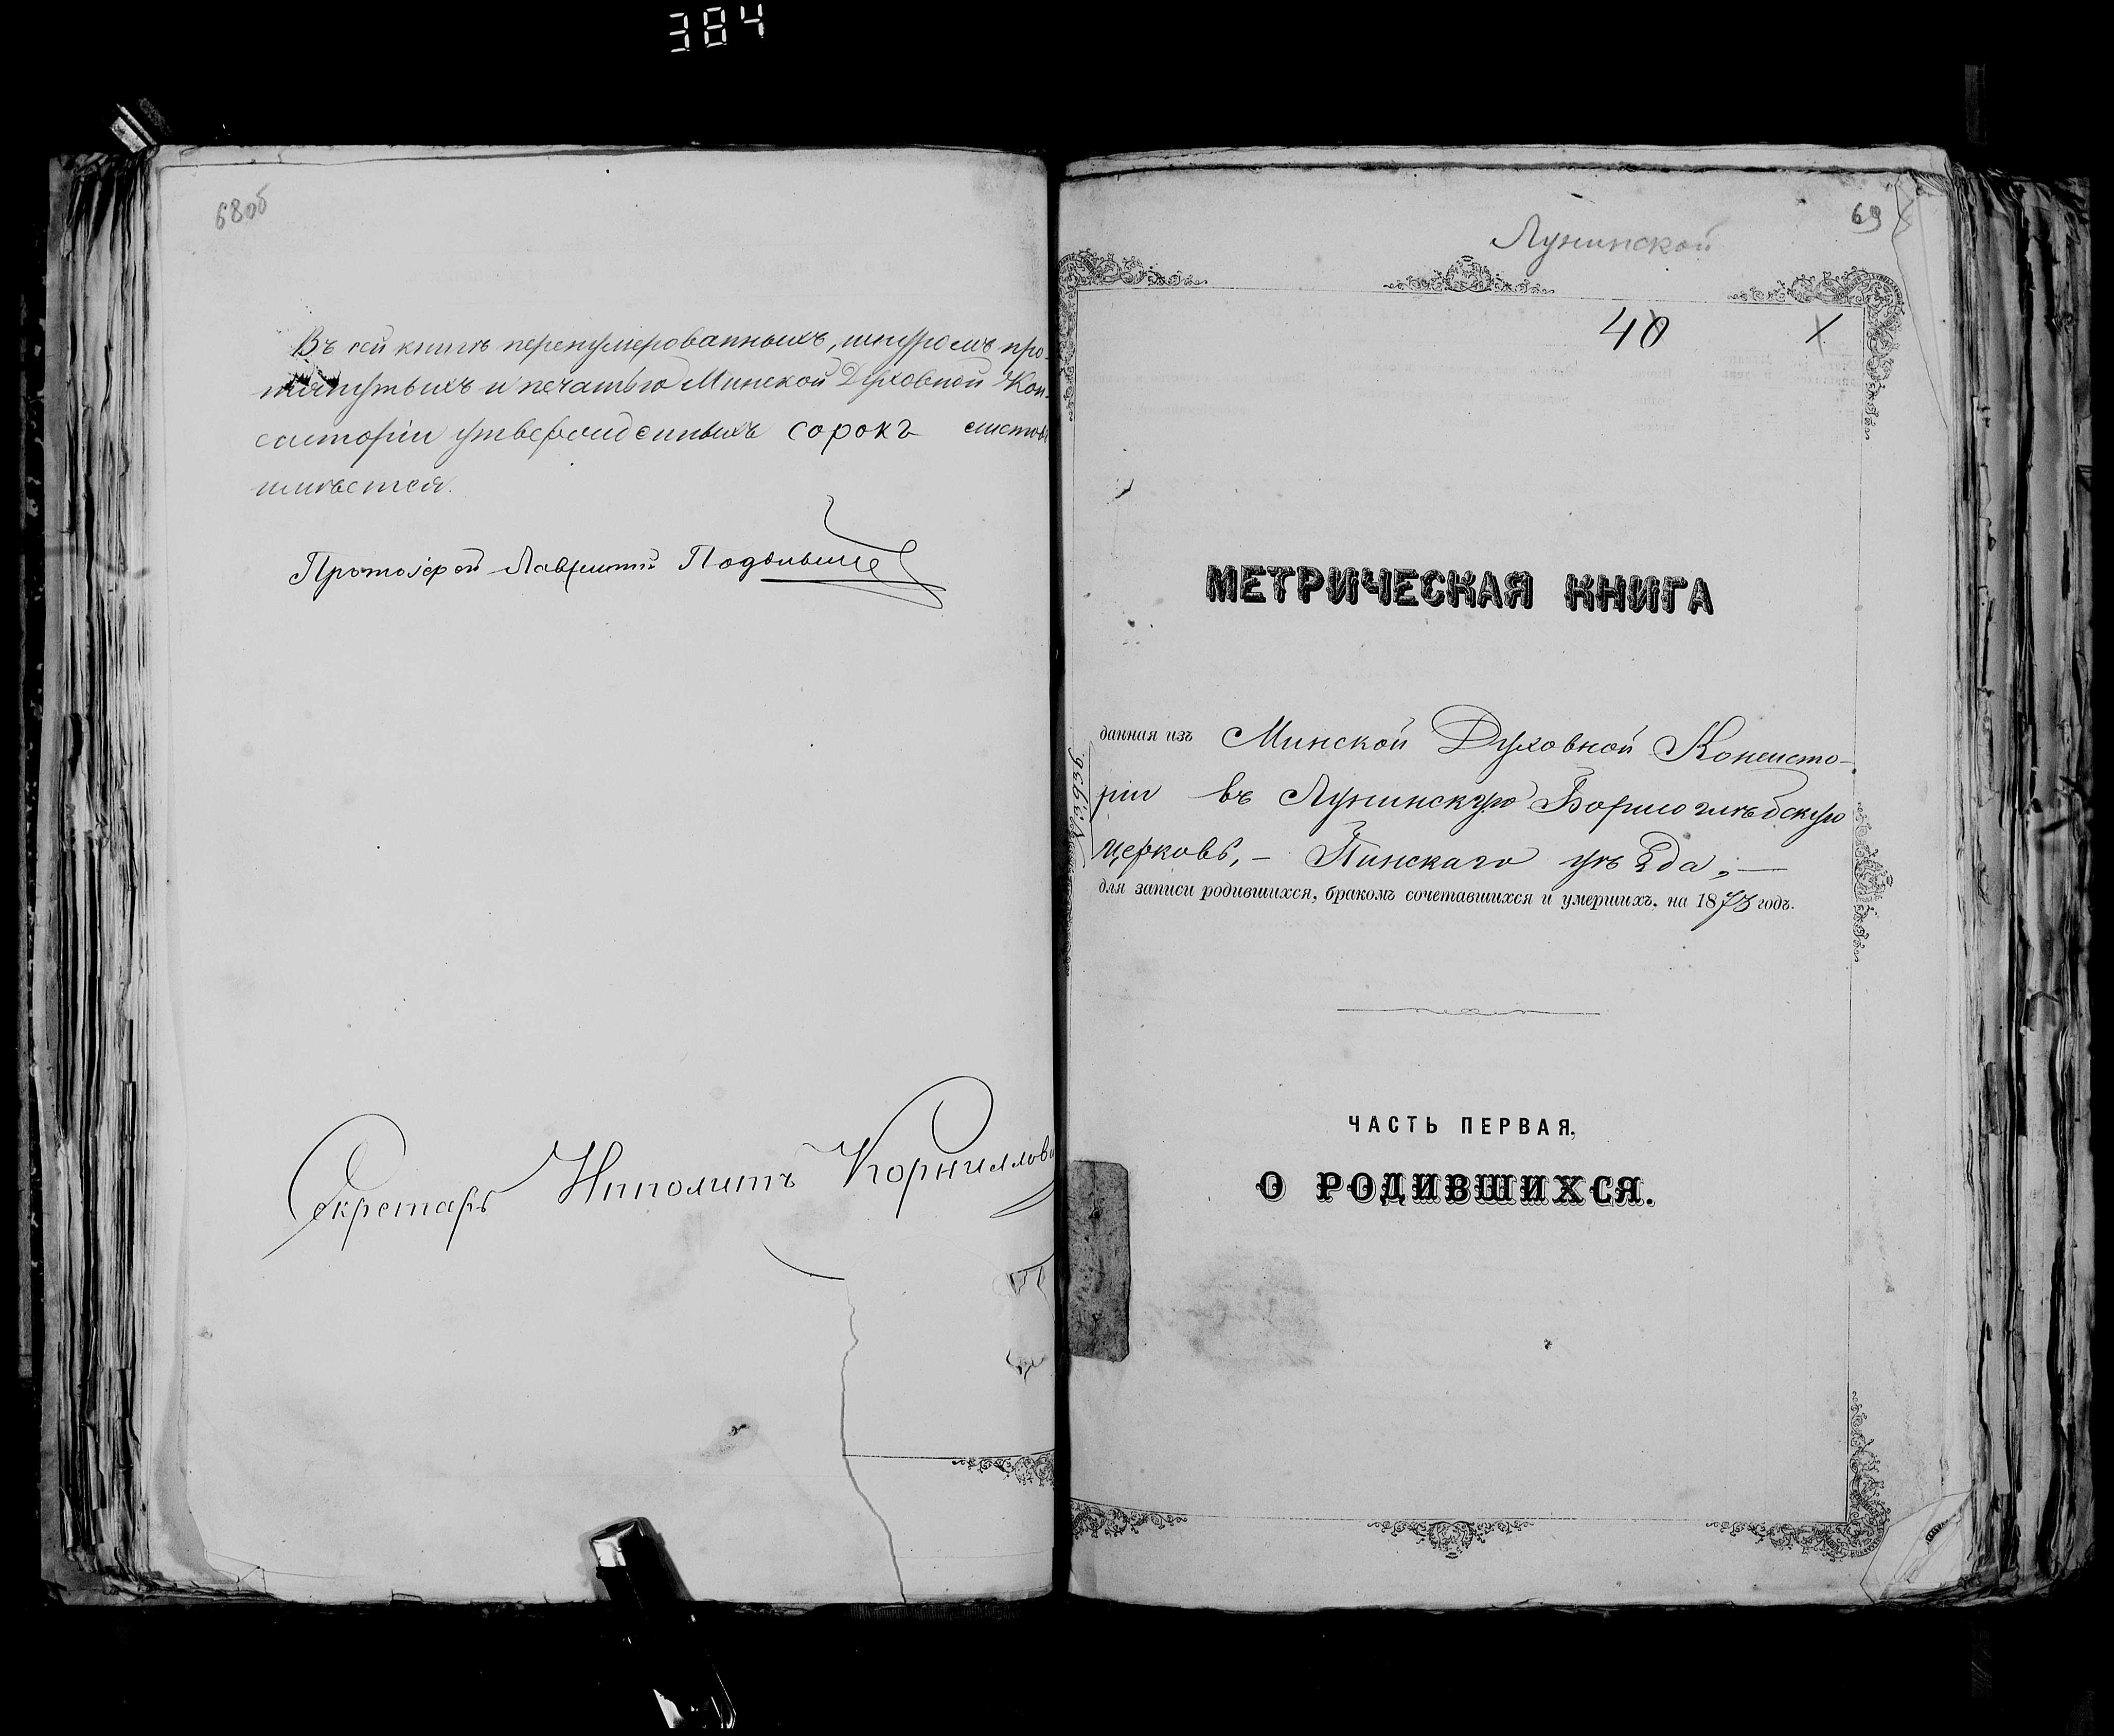 384
68об
Въ сей книгѣ перенумерованныхъ, шнуромъ про-
тянутыхъ и печатью Минской Духовной Кон-
систоріи утвержденныхъ сорокъ листовъ
имѣется.
Протоіерей Лаврентій
Секретарь Ипполитъ Корнилови
69
Лунинской
40
МЕТРИЧЕСКАЯ КНИГА
данная изъ Минской Духовной Консисто-
ріи въ Лунинскую Борисоглѣбскую
церковь, – Пинскаго уѣзда; –
для записи родившихся, бракомъ сочетавшихся и умершихъ, на 1873 годъ.
ЧАСТЬ ПЕРВАЯ.
О РОДИВШИХСЯ.